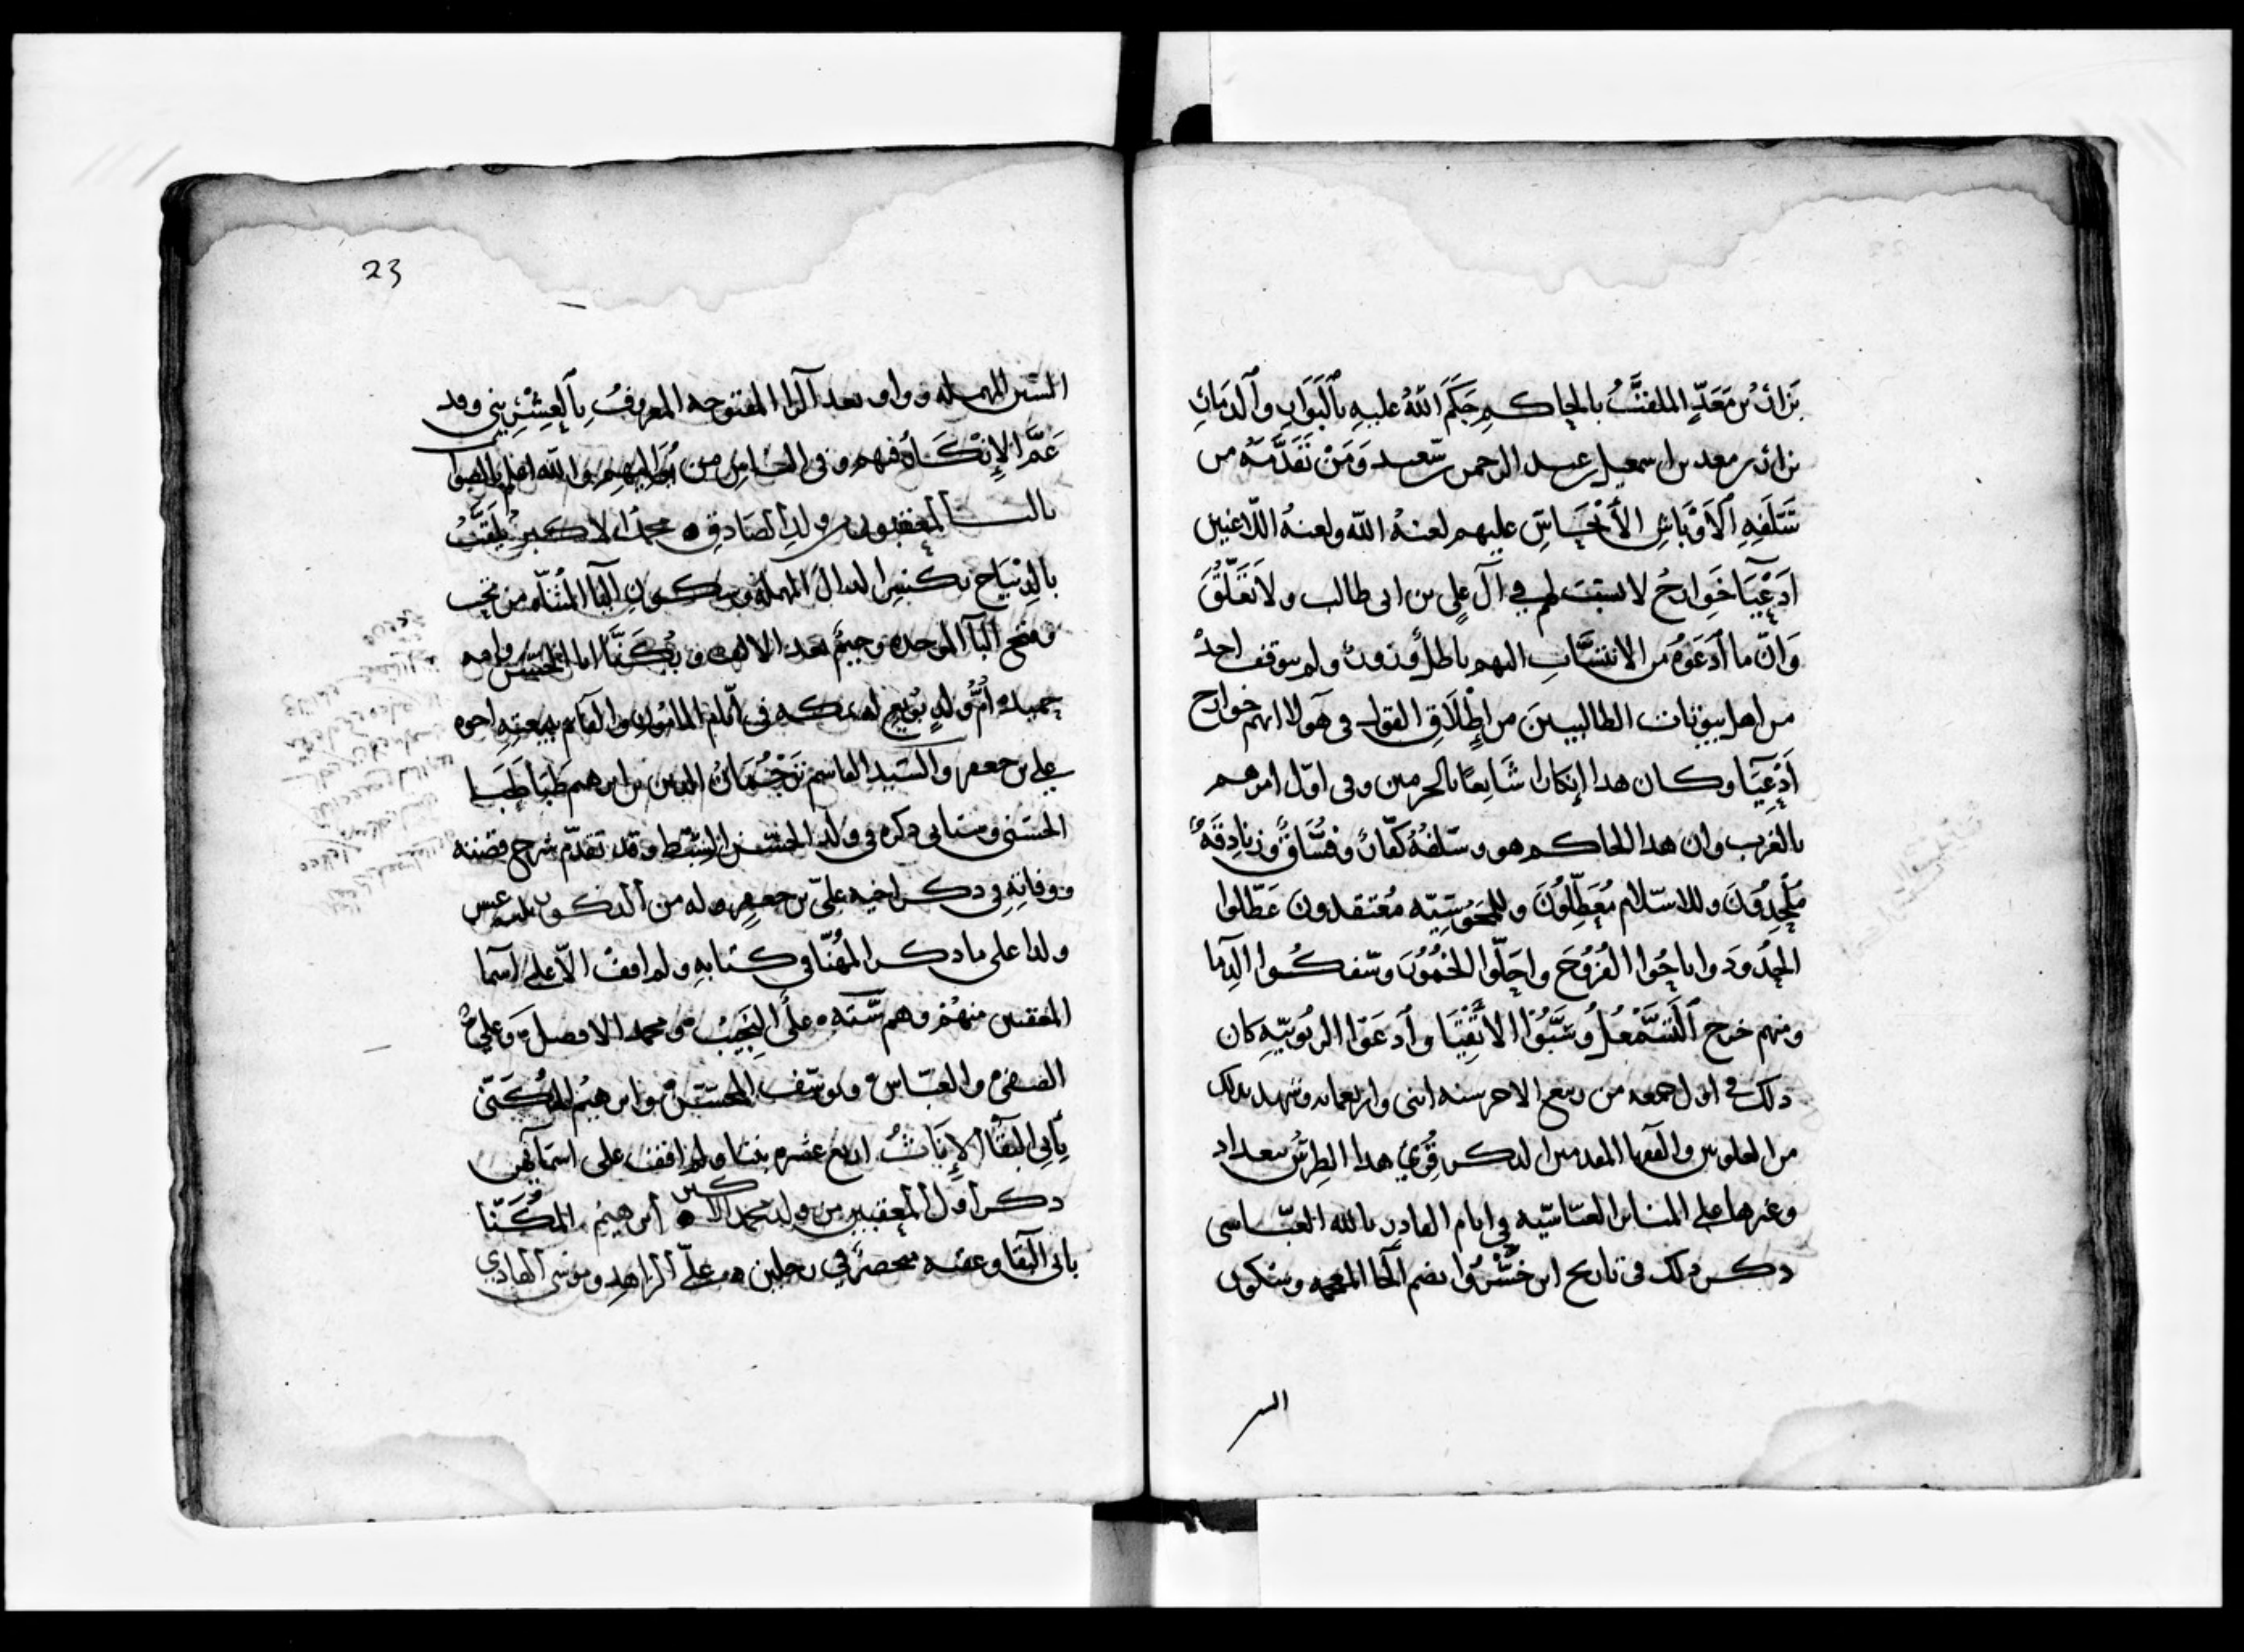 نزار بن معد الملقب بالحاكم حكم الله عليه بالبوار والدمار
نزار بن معد بن اسمعيل بن عبد الرحمن بن سعيد ومن تقدمه من
سلفه الاوباش الأنجاس عليهم لعنة الله ولعنة اللاعنين
ادعيا خوارج لا نسب لهم في آل علي بن ابي طالب ولا تعلق
وان ما ادعوه من الانتساب اليهم باطل وزور ولم يتوقف احد
من اهل بيوتات الطالبيين من إطلاق القول في هولا انهم خوارج
أدعيا وكان هذا إنكارا شايعا بالحرمين وفى اول امرهم
بالغرب وان هذا الحاكم هو وسلفه كفار وفساق وزنادقة
ملحدون وللاسلام معطلون وللمجوسيه معتقدون عطلوا
الحدود واباحوا الفروج واحلوا الخمور وسفكوا الدما
ومنهم خرج وسبوا الأنبيا وادعوا الربوبيه كان
ذلك في اول جمعه من ربيع الاخر سنه اثنى واربعمايه وشهد بذلك
من العلويين والفقها المقدمين الذكر قري هذا الطرس ببغداد
وغيرها على المنابر العباسيه في ايام القادر بالله العباسى
ذكر ذلك فى تاريخ ابن خسروا بضم الخا المعجمه وسكون
السين
23
السين المهمله وواو بعد الرا المفتوحه المعروف وقد
عم الإنكار فيهم وفى الناس من والله اعلم بالصواب
بالـ المعقبون من ولد الصادق محمد الاكبر يلقب
بالديباج بكسر الدال المهملة وسكون اليا المثناه من تحت
وفتح البا الموحده وجيم بعد الالف ويكنا ابا وامه
حميده أم ولد بويع له بمكه فى ايام المامون والقايم ببيعته اخوه
علي بن جعفر والسيد القاسم ترجمان الدين بن ابراهيم طباطبا
الحسنى وسياتى ذكره في ولد الحسن السبط وقد تقدم شرح قصته
ووفاته في ذكر اخيه علي بن جعفر وله من الذكور عشر
ولدا على ما ذكر المهنا في كتابه ولم اقف الا على اسما
المعقبين منهم وهم سته علي النجيب ومحمد الافضل وعلي
والعباس ويوسف المحسن وابراهيم المكنى
بأبي البقا الإناث اربع عشره بنتا ولم اقف على اسمايهن
ذكر أول المعقبين من ولد محمد الاكبر ابراهيم المكنا
بابى البقا وعقبه منحصر في رجلين هما علي الزاهد وموسى الهادي